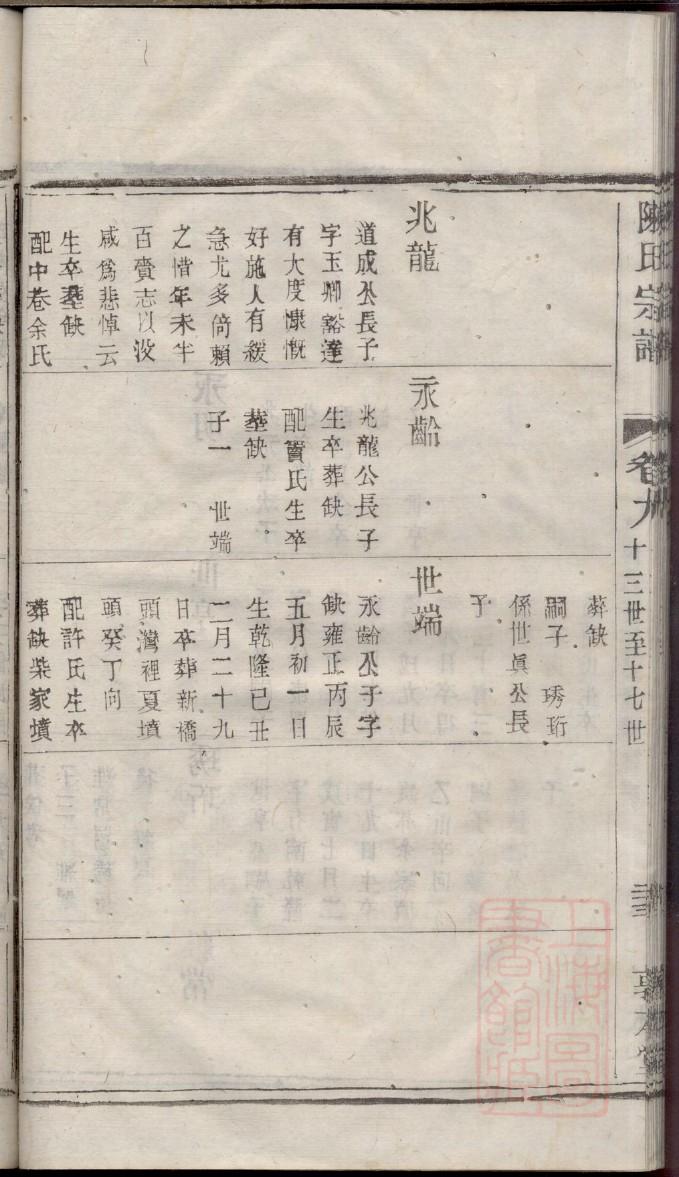 陳氏宗譜
卷九
十三世至十七世
敦本堂
兆龍
道成公長子
字玉卿豁達
有大度慷慨
好施人有緩
急尤多倚賴
之惜年未半
百賫志以沒
咸爲悲悼云
生卒塟缺
配中巷余氏
永齡
兆龍公長子
生卒葬缺
配竇氏生卒
塟缺
子一 世端
葬缺
嗣子 琇珩
係世眞公長
子
世端
永齡公子字
缺雍正丙辰
五月初一日
生乾隆己丑
二月二十九
日卒葬新橋
頭灣裡夏墳
頭癸丁向
配許氏生卒
葬缺柴家墳
上海圖書館藏